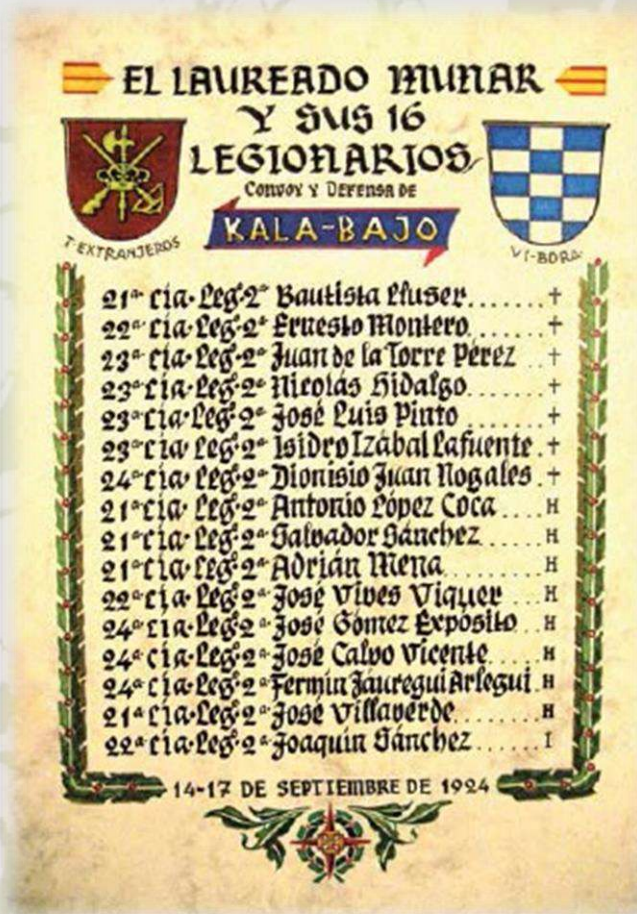 EL LAUREADO MUNAR
Y SUS 16
LEGIONARIOS
CONVOY Y DEFENSA DE
KALA-BAJO
T. EXTRANJEROS
VI-BORA
21ª cia. Leg. 2ª Bautista Lluser....... †
22ª cia. Leg. 2ª Ernesto Montero....... †
23ª cia. Leg. 2ª Juan de la Torre Pérez .. †
23ª cia. Leg. 2ª Nicolás Hidalgo....... †
23ª cia. Leg. 2ª José Luis Pinto ....... †
23ª cia. Leg. 2ª Isidro Izábal Lafuente . †
24ª cia. Leg. 2ª Dionisio Juan Nogales . †
21ª cia. Leg. 2ª Antonio López Coca .... H
21ª cia. Leg. 2ª Salvador Sánchez...... H
21ª cia. Leg. 2ª Adrián Mena......... H
22ª cia. Leg. 2ª José Vives Viquer ... H
24ª cia. Leg. 2ª José Gómez Expósito ... H
24ª cia. Leg. 2ª José Calvo Vicente.... H
24ª cia. Leg. 2ª Fermín Jauregui Arlegui . H
21ª cia. Leg. 2ª José Villaverde........ H
22ª cia. Leg. 2ª Joaquín Sánchez...... I
14-17 DE SEPTIEMBRE DE 1924